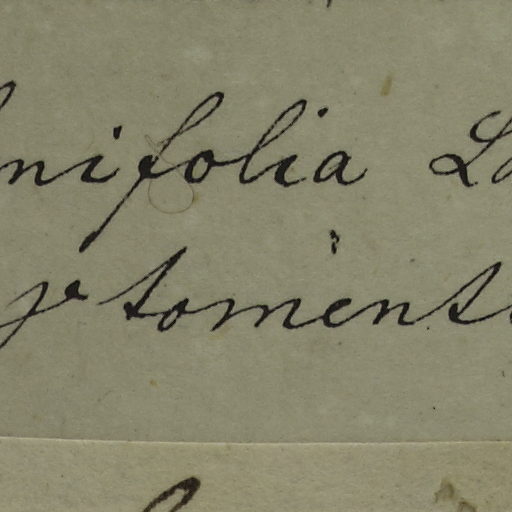 nifolia La
γ toments